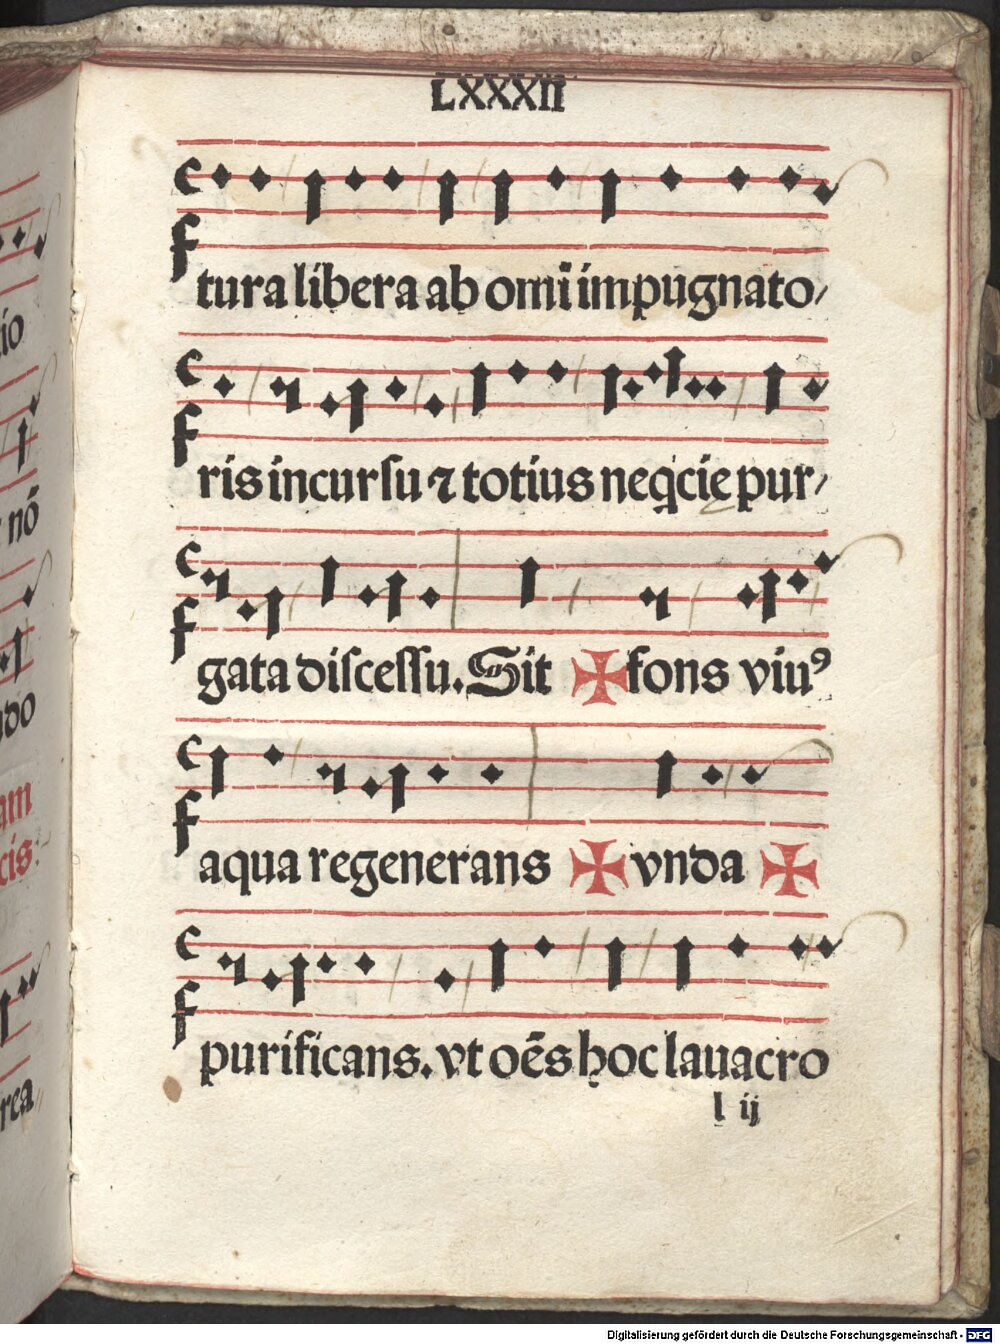 LXXXII
tura libera ab omī impugnato/
ris incursu ⁊ totius neq̇cie pur/
gata discessu. Sit ✠ fons viuꝰ
aqua regenerans ✠ vnda ✠
purificans. vt oēs hoc lauacro
l ij
io
nō
ndo
am
cis
rea
Digitalisierung gefördert durch die Deutsche Forschungsgemeinschaft - DFG